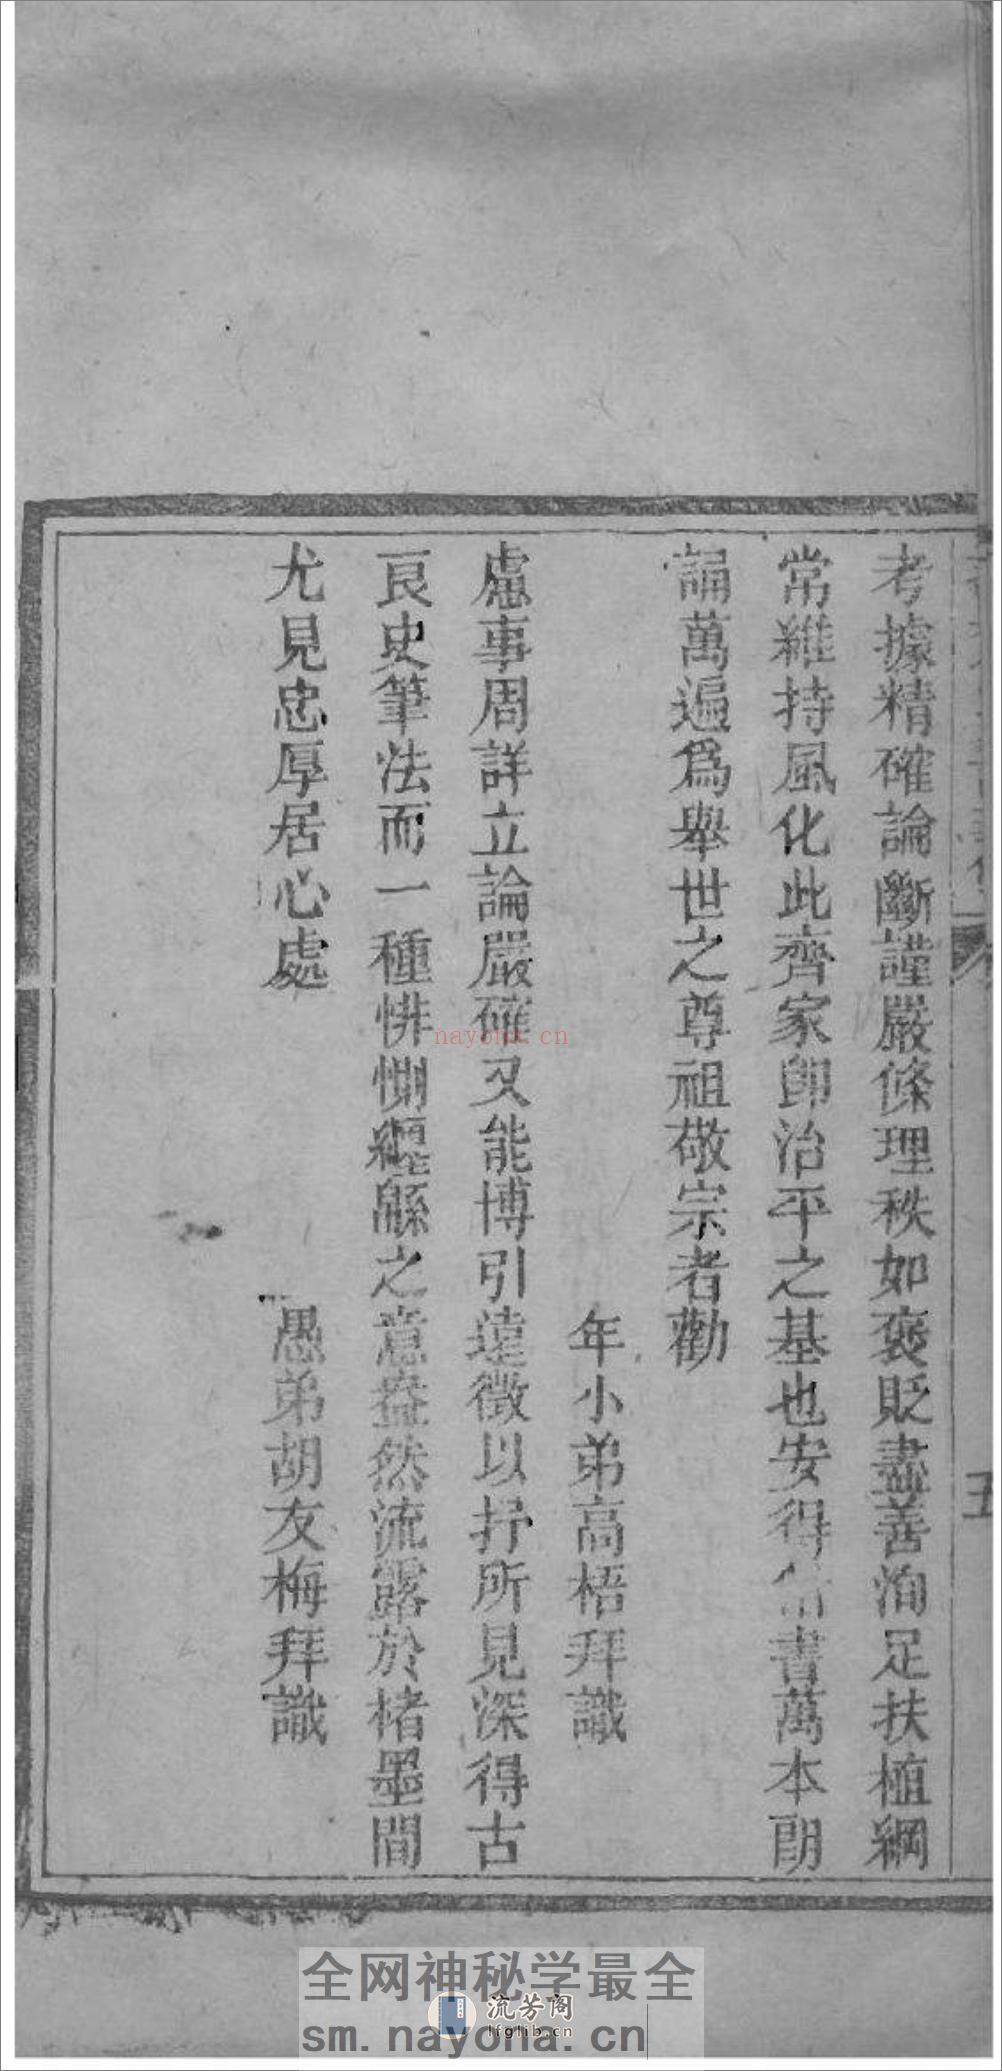 考據精確論斷謹嚴條理秩如褒貶盡善洵足扶植綱
常維持風化此齊家卽治平之基也安得書萬本朗
誦萬遍爲舉世之尊祖敬宗者勸
年小弟高梧拜識
慮事周詳立論嚴確又能博引遠徵以抒所見深得古
良史筆法而一種悱惻纏綿之意盎然流露於楮墨間
尤見忠厚居心處
愚弟胡友梅拜識
五
nayona.cn
全网神秘学最全
流芳阁
lfglib.cn
sm.nayona.cn